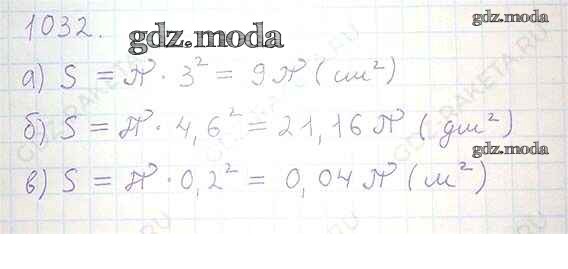 1032.
gdz.moda
gdz.moda
а) S = π · 3² = 9π (см²)
б) S = π · 4,6² = 21,16π (дм²)
gdz.moda
в) S = π · 0,2² = 0,04π (м²)